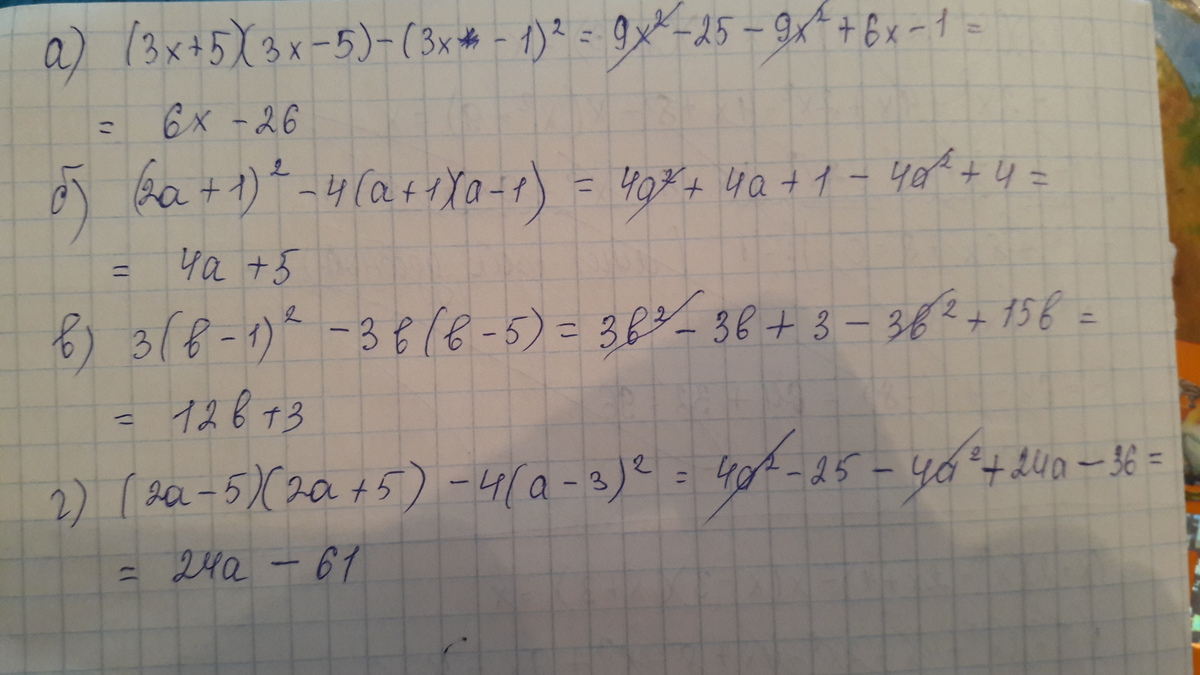 а) (3x+5)(3x-5)-(3x-1)² = 9x²-25-9x²+6x-1=
= 6x-26
б) (2a+1)²-4(a+1)(a-1) = 4a²+4a+1-4a²+4=
= 4a+5
в) 3(b-1)²-3b(b-5) = 3b²-3b+3-3b²+15b=
= 12b+3
г) (2a-5)(2a+5)-4(a-3)² = 4a²-25-4a²+24a-36=
= 24a-61